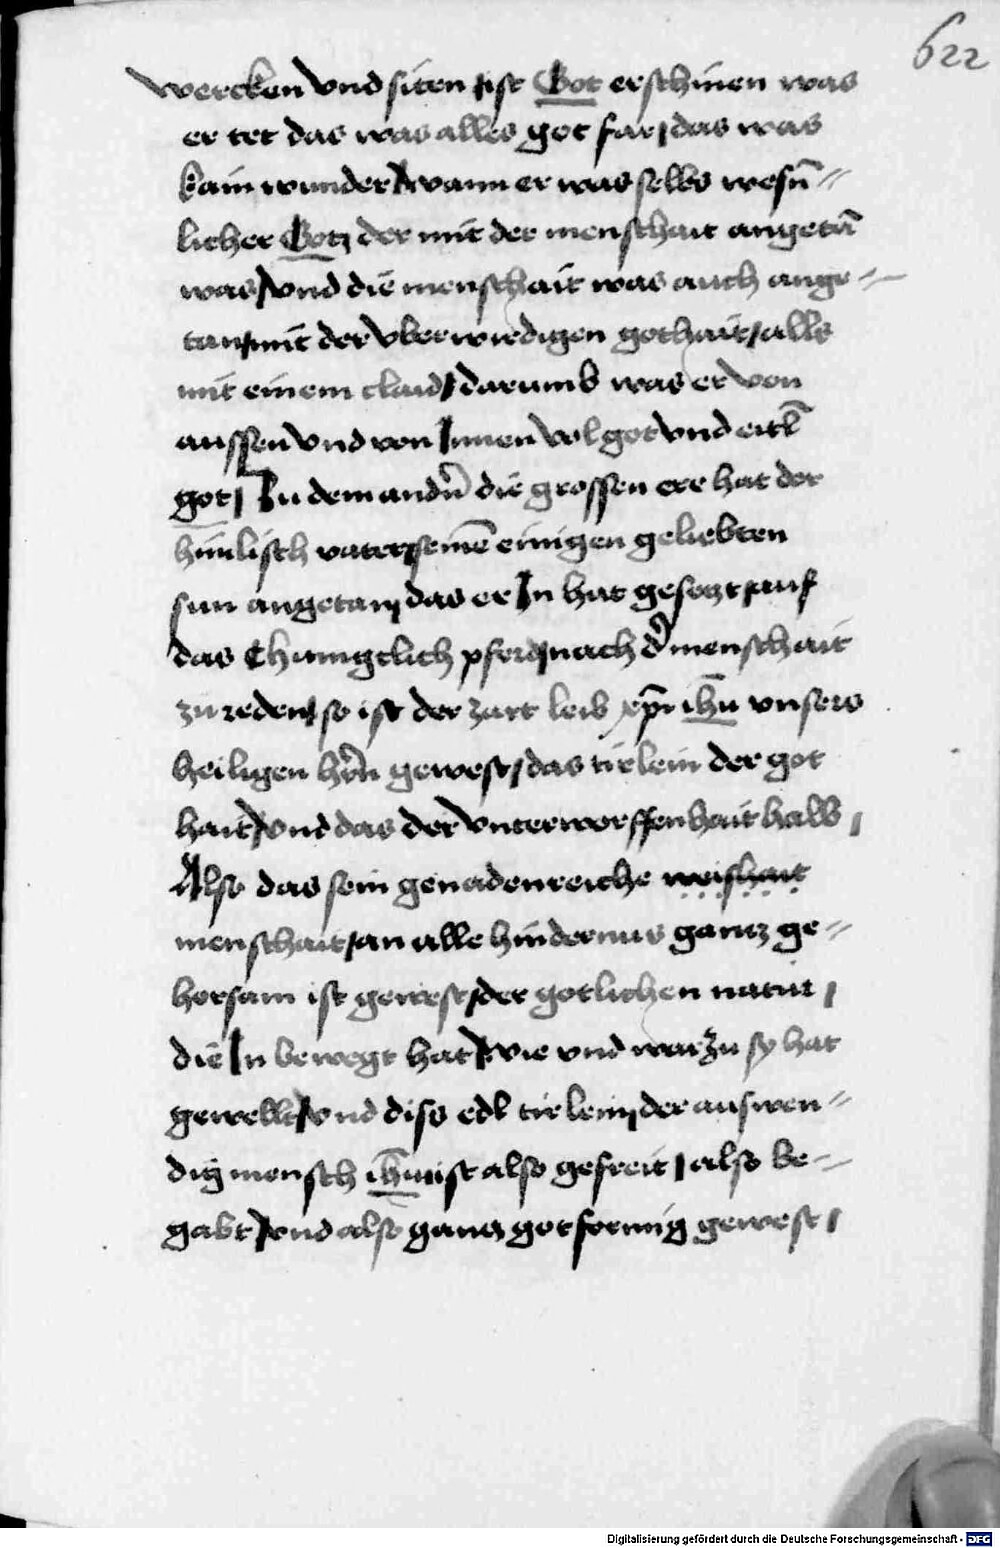 622
wercken vnd siten / ist Got erschinen was
er tet das was alles got far / das was
kain wunder / wann er was selbs wesn̄ =
licher Got / der mit der menschait angetā
was / vnd die menschait was auch ange =
tan / mit der vberwirdigen gothait / alls
mit einem claid / darumb was er von
aussen vnd von Innen vol got vnd eitl̄
got / In dem andn̄ die grossen ere hat der
himlisch vater / seinē einigen geliebten
sun angetan / das er In hat gesetzt / auf
das Chunigclich pferd / nach d' menschait
zu reden / so ist der zart leib xp̄i ih̄u vnsers
heiligen hr̄n gewest / das tirlein der got
hait / vnd das der vnterworffenhait halb /
Also das sein genadenreiche weishait
menschait / an alle hindernus gantz ge =
horsam ist gewest / der gotlichen natur /
die In bewegt hat / wie vnd warzu sy hat
gewellt / vnd diso edl tirlein / der auswen =
dig mensch ih̄us ist also gefreit / also be =
gabt / vnd also gantz gotformig gewest /
Digitalisierung gefördert durch die Deutsche Forschungsgemeinschaft - DFG